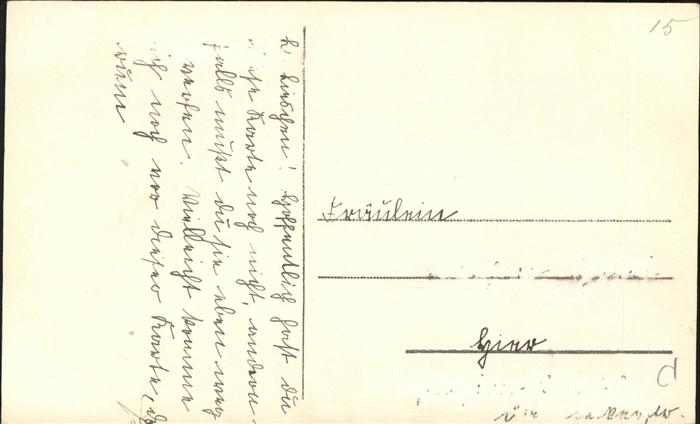 L. Lieschen! Hoffentlich hast du
diese Karte noch nicht, andern-
falls mußt du sie eben weg
werfen. Vielleicht komme
ich noch vor dieser Karte,
rum
Fräulein
Hier
15
d